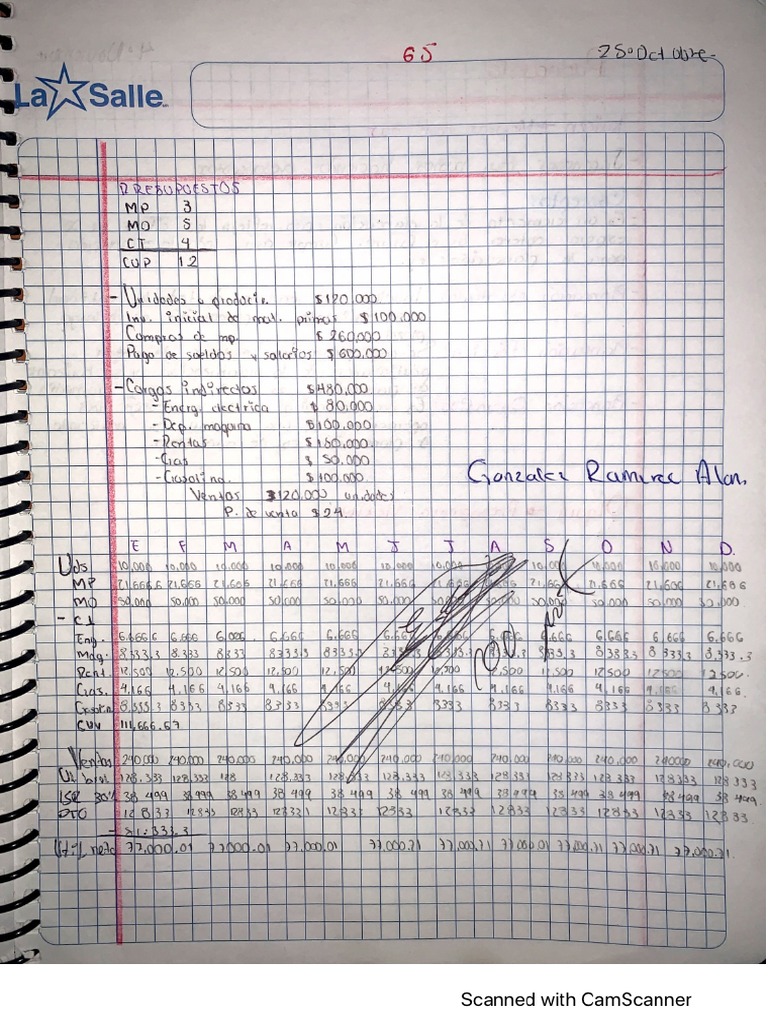 65
25 Octubre
La Salle
PRESUPUESTOS
MP 3
MO 5
CT 4
CUP 12
- Unidades a producir $120,000
Inv. inicial de mat. primas $100,000
Compras de mp. $260,000
Pago de sueldos y salarios $600,000
- Cargos indirectos $480,000
- Energ. electrica $80,000
- Dep. maquina $100,000
- Rentas $150,000
- Gas $50,000
- Gasolina $100,000
Gonzalez Ramirez Alan.
Ventas $120,000 unidades
P. de venta $24
E F M A M J J A S O N D.
Uds 10,000 10,000 10,000 10,000 10,000 10,000 10,000 10,000 10,000 10,000 10,000
MP 21,666.6 21,666 21,666 21,666 21,666 21,666 21,666 21,666 21,666 21,666
MO 50,000 50,000 50,000 50,000 50,000 50,000 50,000 50,000 50,000 50,000
- CI
Eng. 6,666 6,666 6,666 6,666 6,666 6,666 6,666 6,666
Maq. 8333.3 8,333 8333 8333.3 8333.3 8,333.3
Rent. 12,500 12,500 12,500 12,500 12,500 12500 12500 12500
Gas. 4,166 4,166 4,166 4,166 4,166 4,166 4,166 4,166 4,166 4,166 4,166
Gasolin. 8,333.3 8333 8333 8333 8333 8333 8333 8333 8333
CUV 111,666.67
Ventas 240,000 240,000 240,000 240,000 240,000 240,000 240,000 240,000 240,000 240000 240,000
Ut. brut. 128,333 128,333 128 128,333 128,333 128,333 128,333 128333 128333
ISR 30% 38 499 38 499 38 499 38 499 38 499 38 499 38 499 38 499 38 499 38 499 38 499
PTU 12 833 12833 12833 12833 12833 12833 12833 12833
- 51,333.3
Util neta 77,000.01 77,000.01 77,000.01 77,000.71 77,000.71 77,000.01 77,000.71 77,000.71 77,000.71
Scanned with CamScanner